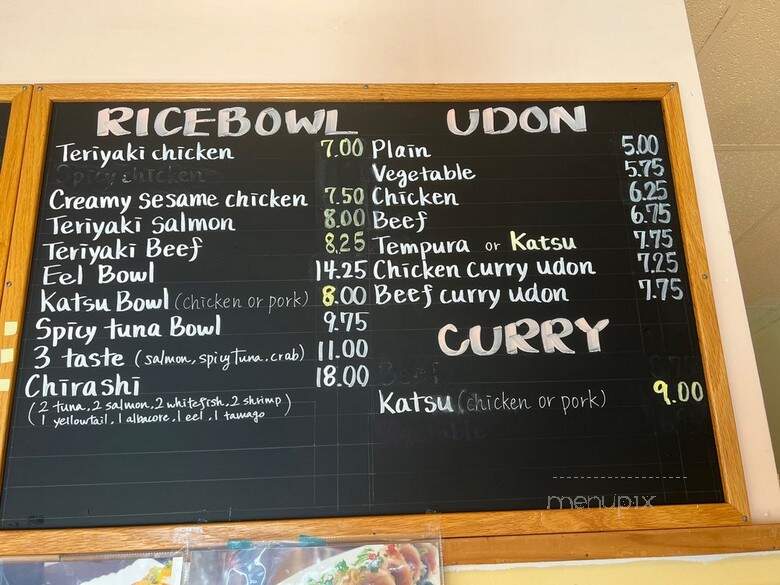 RICEBOWL
Teriyaki chicken 7.00
Spicy chicken
Creamy sesame chicken 7.50
Teriyaki Salmon 8.00
Teriyaki Beef 8.25
Eel Bowl 14.25
Katsu Bowl (chicken or pork) 8.00
Spicy tuna Bowl 9.75
3 taste (salmon, spicy tuna, crab) 11.00
Chirashi 18.00
(2 tuna, 2 salmon, 2 whitefish, 2 shrimp)
1 yellowtail, 1 albacore, 1 eel, 1 tamago
UDON
Plain 5.00
Vegetable 5.75
Chicken 6.25
Beef 6.75
Tempura or Katsu 7.75
Chicken curry udon 7.25
Beef curry udon 7.75
CURRY
Beef
Katsu (chicken or pork) 9.00
menupix